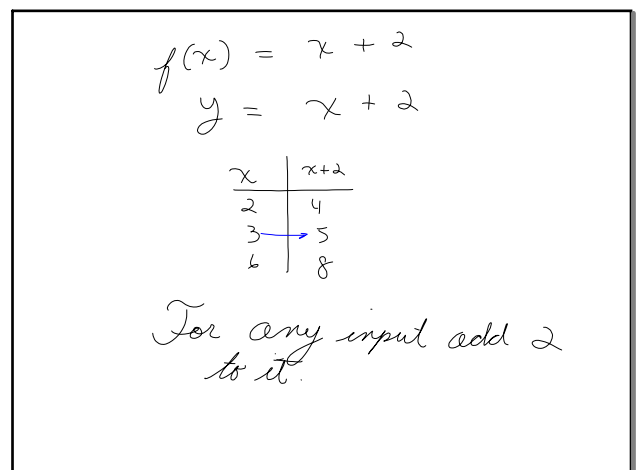 f(x) = x + 2
y = x + 2
x x+2
2 4
3 5
6 8
For any input add 2
to it.